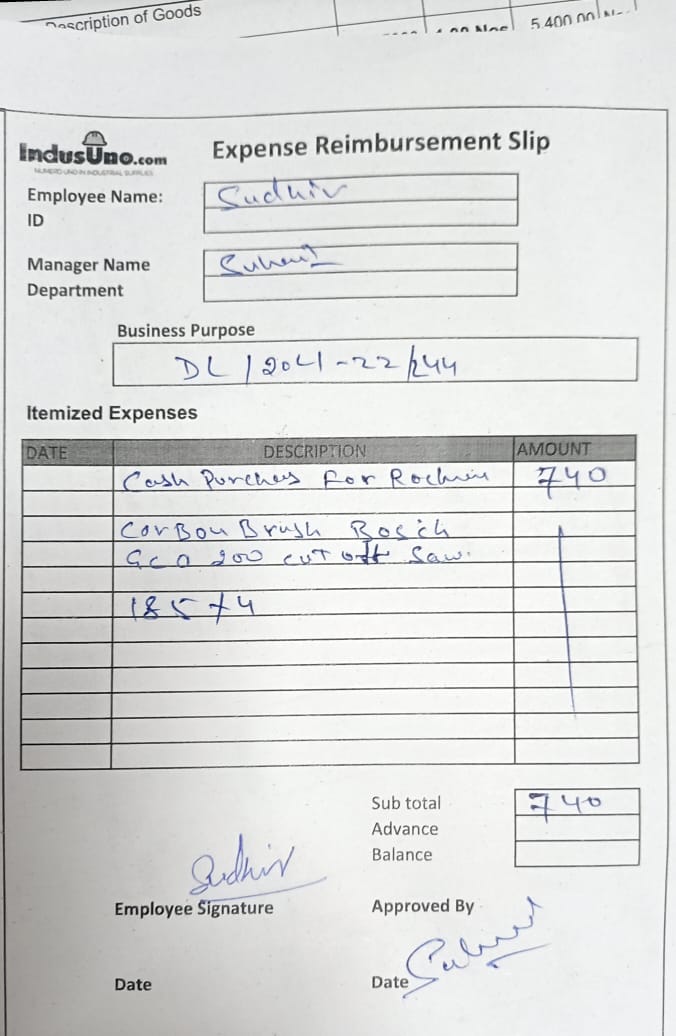 Description of Goods
5,400.00
IndusUno.com
NUMERO UNO IN INDUSTRIAL SUPPLIES
Expense Reimbursement Slip
Employee Name: Sudhir
ID
Manager Name
Department
Business Purpose
DL/2021-22/244
Itemized Expenses
DATE DESCRIPTION AMOUNT
Cash Purches For 740
Carbon Brush Bosch
GCO 200 cut off Saw.
185 x 4
Sub total 740
Advance
Balance
Sudhir
Employee Signature Approved By
Date Date